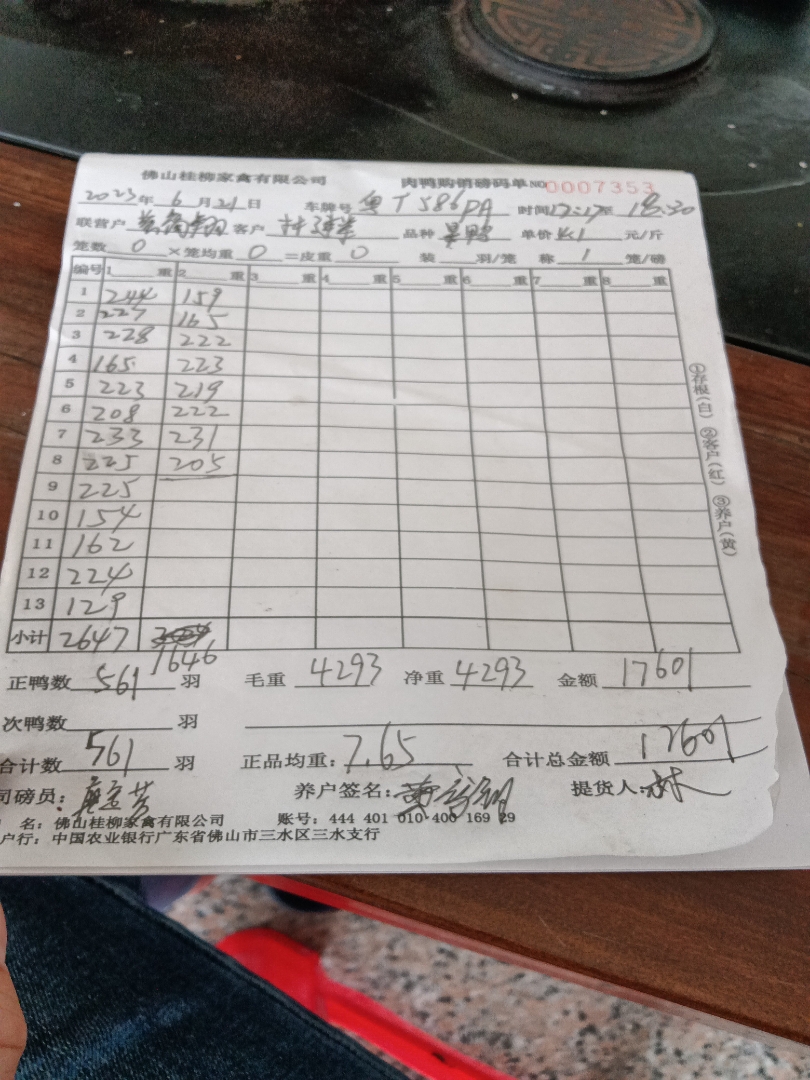 佛山桂柳家禽有限公司 肉鸭购销磅码单 NO 0007353
2023年 6月21日 车牌号 粤T586DA 时间17:17至 18:30
联营户 客户 林 品种 单价 4.1 元/斤
笼数 0 ×笼均重 0 =皮重 0 装 羽/笼 称 1 笼/磅
编号 1 重 2 重 3 重 4 重 5 重 6 重 7 重 8 重
1 244 159
2 227 165
3 228 222
4 165 223
5 223 219
6 208 222
7 233 231
8 225 205
9 225
10 154
11 162
12 224
13 129
小计 2647
1646
正鸭数 561 羽 毛重 4293 净重 4293 金额 17601
次鸭数 羽
合计数 561 羽 正品均重: 7.65 合计总金额 17601
司磅员: 养户签名: 提货人: 林
名: 佛山桂柳家禽有限公司 账号: 444 401 010 400 169 29
户行: 中国农业银行广东省佛山市三水区三水支行
①存根(白) ②客户(红) ③养户(黄)